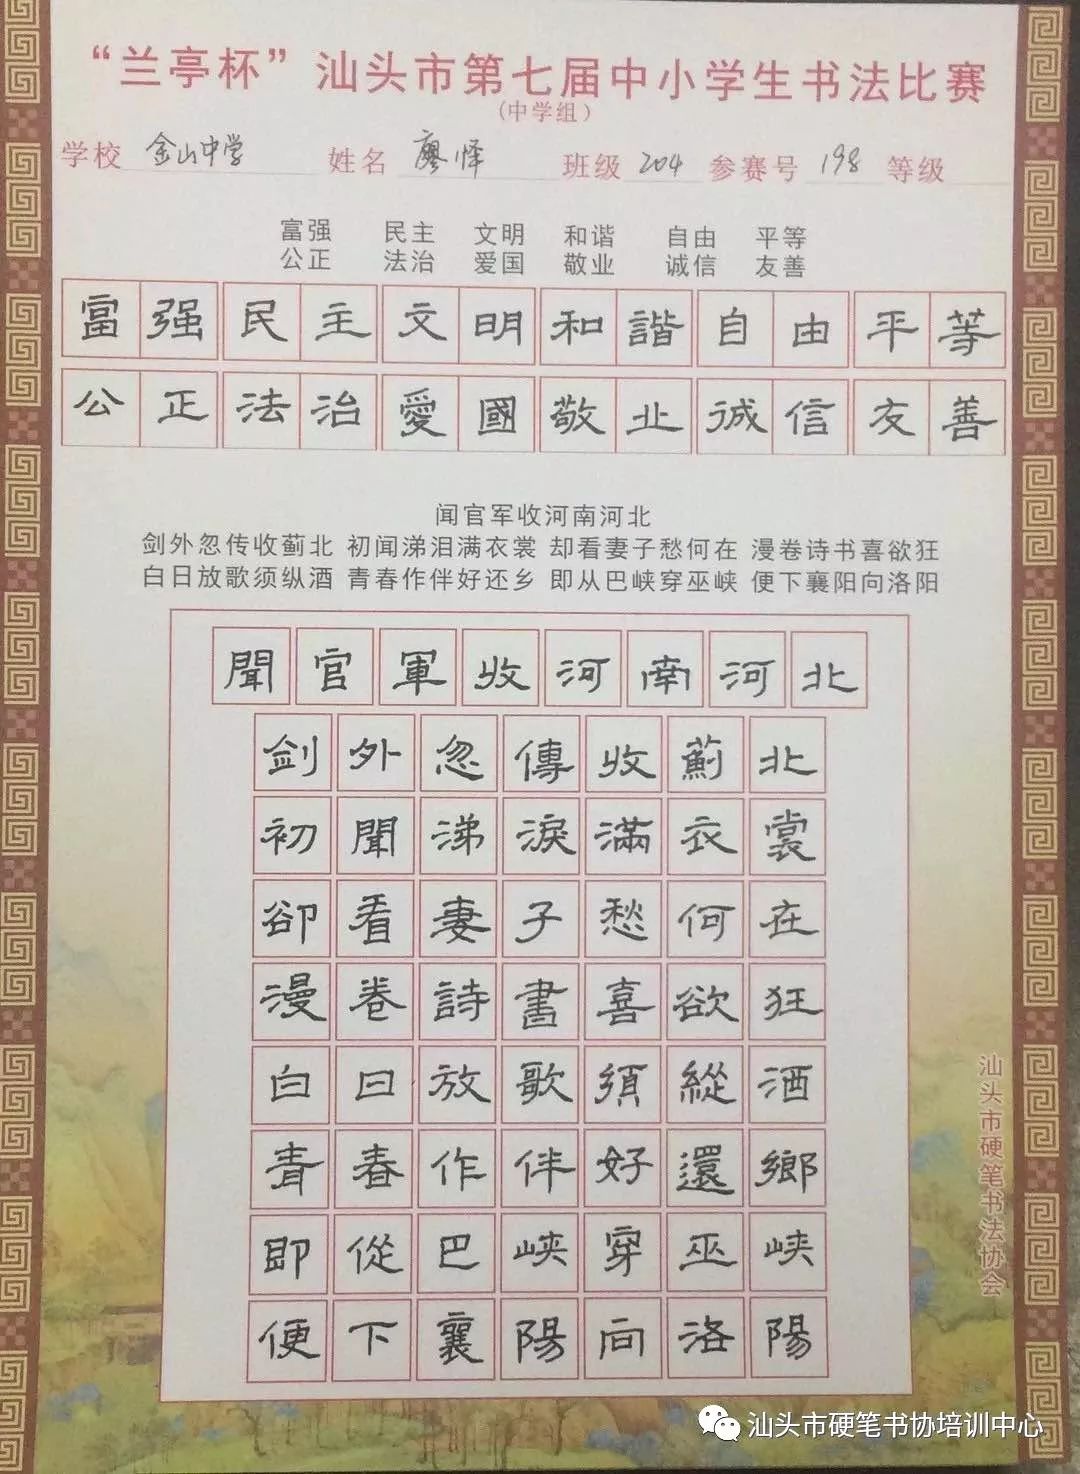 “兰亭杯”汕头市第七届中小学生书法比赛
(中学组)
学校 金山中学 姓名 廖怿 班级 204 参赛号 198 等级
富强 民主 文明 和谐 自由 平等
公正 法治 爱国 敬业 诚信 友善
富强民主文明和諧自由平等
公正法治愛國敬北誠信友善
闻官军收河南河北
剑外忽传收蓟北 初闻涕泪满衣裳 却看妻子愁何在 漫卷诗书喜欲狂
白日放歌须纵酒 青春作伴好还乡 即从巴峡穿巫峡 便下襄阳向洛阳
聞官軍收河南河北
剑外忽傳收薊北
初聞涕淚滿衣裳
卻看妻子愁何在
漫卷詩書喜欲狂
白日放歌須縱酒
青春作伴好還鄉
即從巴峡穿巫峡
便下襄陽向洛陽
汕头市硬笔书法协会
汕头市硬笔书协培训中心